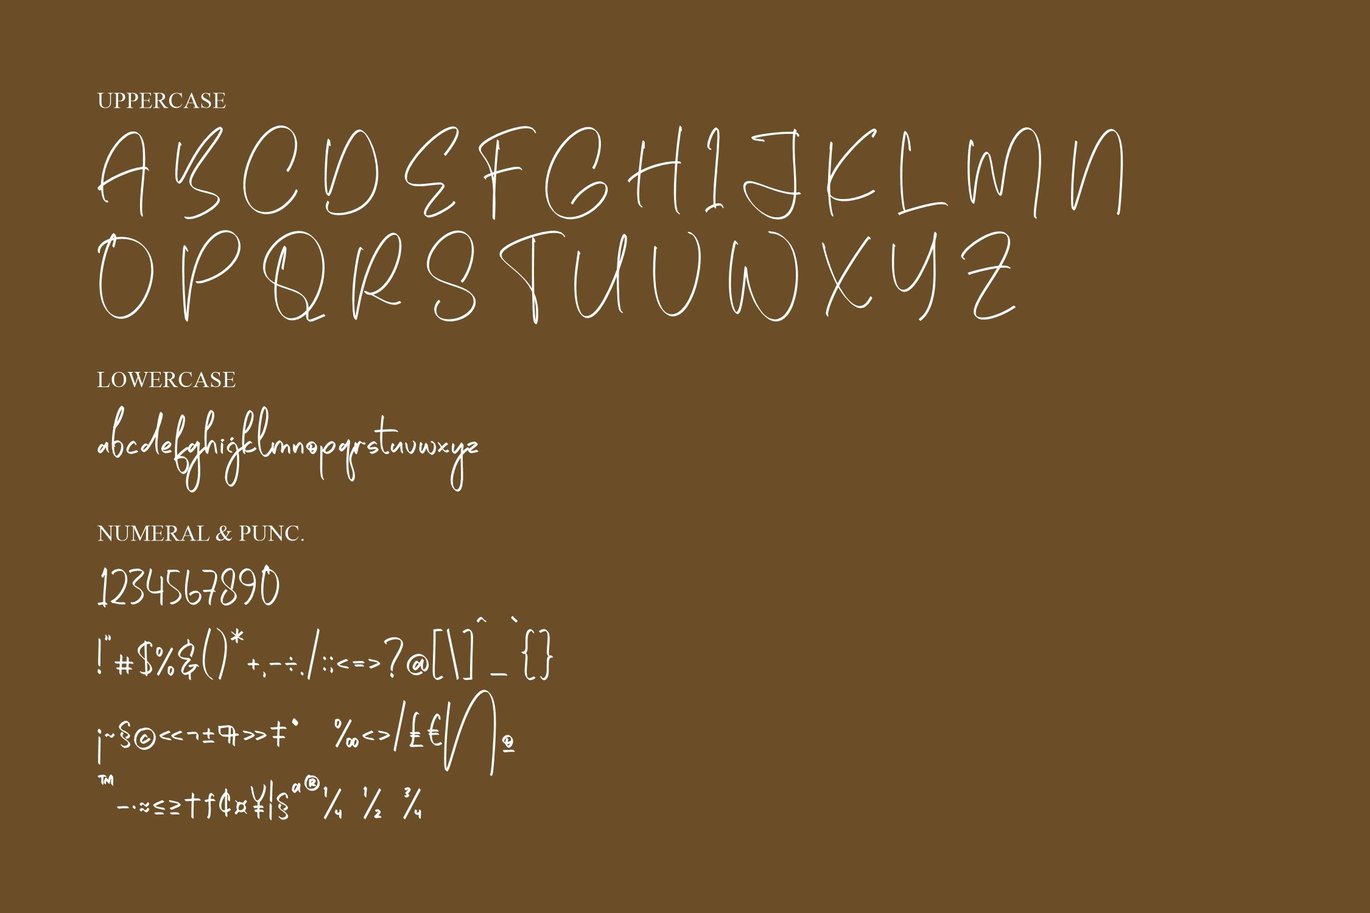 UPPERCASE
ABCDEFGHIJKLMN
OPQRSTUVWXYZ
LOWERCASE
abcdefghijklmnopqrstuvwxyz
NUMERAL & PUNC.
1234567890
!"#$%&()*+,-÷./:;<=>?@[\]^_`{}
¡~§©<<¬±¶>>‡• ‰<>/£€№
™–·≈≤≥†ƒ¢¤¥¦§ª®¼ ½ ¾